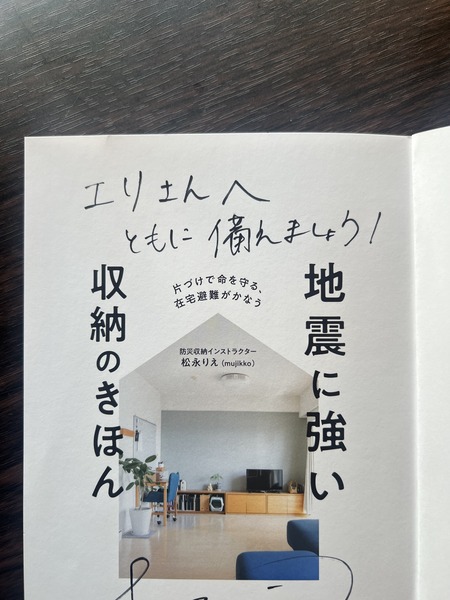 エリさんへ
ともに備えましょう!
地震に強い
収納のきほん
片づけで命を守る、
在宅避難がかなう
防災収納インストラクター
松永りえ(mujikko)